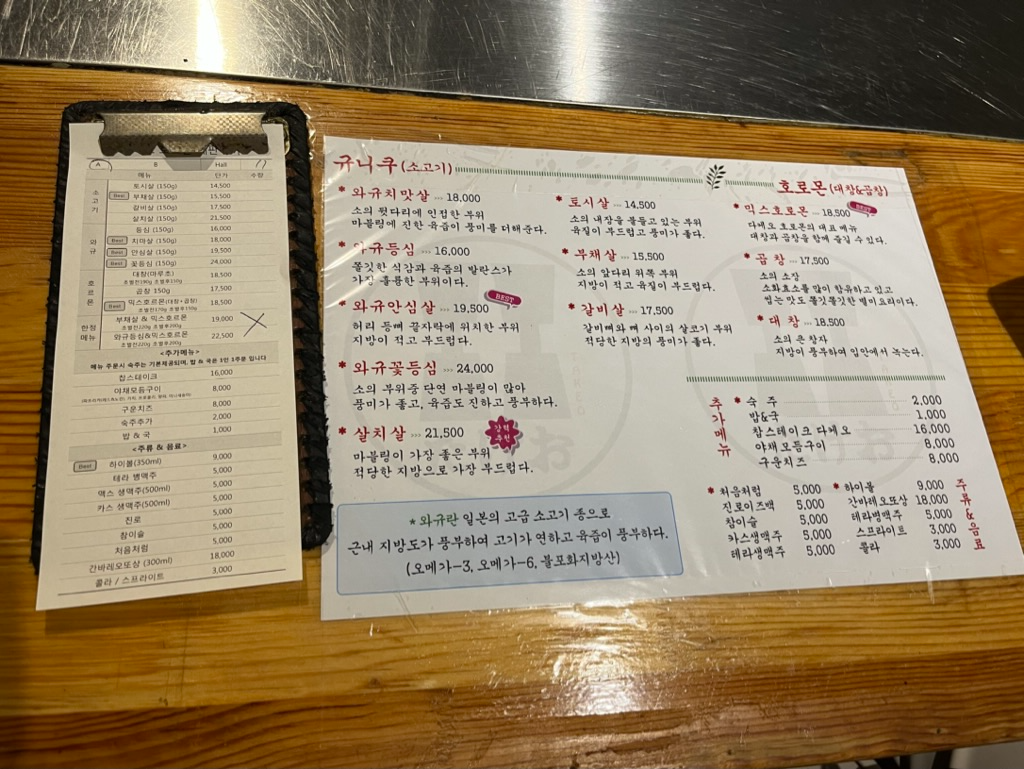 A B Hall
메뉴 단가 수량
소고기
토시살 (150g) 14,500
Best 부채살 (150g) 15,500
갈비살 (150g) 17,500
살치살 (150g) 21,500
와규
등심 (150g) 16,000
Best 치마살 (150g) 18,000
Best 안심살 (150g) 19,500
Best 꽃등심 (150g) 24,000
호르몬
대창(마루초) 18,500
초벌전190g 초벌후110g
곱창 150g 17,500
Best 믹스호르몬(대창+곱창) 18,500
초벌전170g 초벌후150g
한정메뉴
부채살 & 믹스호르몬 19,000
초벌전220g 초벌후200g
와규등심&믹스호르몬 22,500
초벌전220g 초벌후200g
<추가메뉴>
메뉴 주문시 숙주는 기본제공되며, 밥 & 국은 1인 1주문 입니다
찹스테이크 16,000
야채모듬구이 8,000
구운치즈 8,000
숙주추가 2,000
밥 & 국 1,000
<주류 & 음료>
Best 하이볼(350ml) 9,000
테라 병맥주 5,000
맥스 생맥주(500ml) 5,000
카스 생맥주(500ml) 5,000
진로 5,000
참이슬 5,000
처음처럼 5,000
간바레오또상 (300ml) 18,000
콜라 / 스프라이트 3,000
규니쿠(소고기)
* 와규치맛살 ... 18,000
소의 뒷다리에 인접한 부위
마블링에 진한 육즙이 풍미를 더해준다.
* 와규등심 ... 16,000
쫄깃한 식감과 육즙의 발란스가
가장 훌륭한 부위이다.
* 와규안심살 ... 19,500 BEST
허리 등뼈 끝자락에 위치한 부위
지방이 적고 부드럽다.
* 와규꽃등심 ... 24,000
소의 부위중 단연 마블링이 많아
풍미가 좋고, 육즙도 진하고 풍부하다.
* 살치살 ... 21,500 강력추천
마블링이 가장 좋은 부위
적당한 지방으로 가장 부드럽다.
* 토시살 ... 14,500
소의 내장을 붙들고 있는 부위
육질이 부드럽고 풍미가 좋다.
* 부채살 ... 15,500
소의 앞다리 위쪽 부위
지방이 적고 육질이 부드럽다.
* 갈비살 ... 17,500
갈비뼈와 뼈 사이의 살코기 부위
적당한 지방의 풍미가 좋다.
* 와규란 일본의 고급 소고기 종으로
근내 지방도가 풍부하여 고기가 연하고 육즙이 풍부하다.
(오메가-3, 오메가-6, 불포화지방산)
호로몬(대창&곱창)
* 믹스호로몬 ... 18,500 BEST
다케오 호로몬의 대표 메뉴
대창과 곱창을 함께 즐길 수 있다.
* 곱 창 ... 17,500
소의 소장
소화효소를 많이 함유하고 있고
씹는 맛도 쫄깃쫄깃한 별미요리이다.
* 대 창 ... 18,500
소의 큰 창자
지방이 풍부하여 입안에서 녹는다.
추가메뉴
* 숙 주 2,000
밥&국 1,000
찹스테이크 다케오 16,000
야채 모듬구이 8,000
구운치즈 8,000
* 처음처럼 5,000
진로이즈백 5,000
참이슬 5,000
카스생맥주 5,000
테라생맥주 5,000
* 하이볼 9,000
간바레오또상 18,000
테라병맥주 5,000
스프라이트 3,000
콜라 3,000
주류&음료